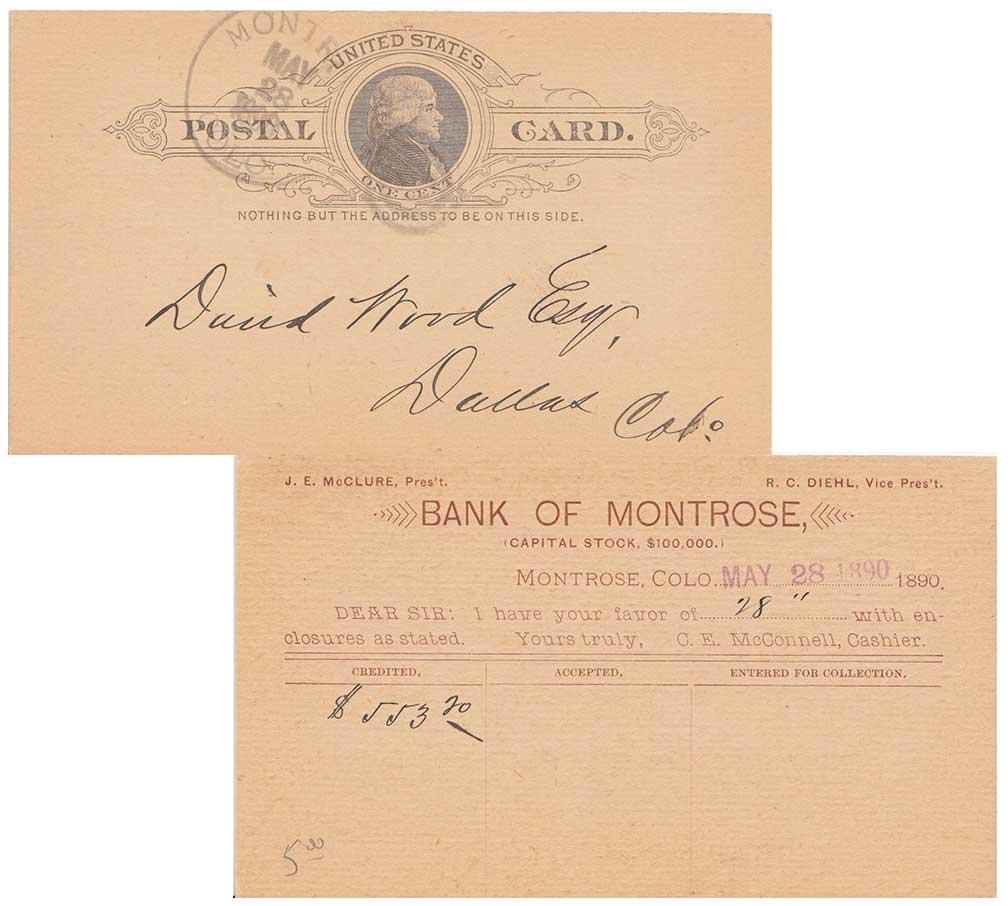 MONTR
MAY
28
COLO
UNITED STATES
POSTAL CARD.
ONE CENT
NOTHING BUT THE ADDRESS TO BE ON THIS SIDE.
David Wood Esq,
Dallas Colo
J. E. McCLURE, Pres't. R. C. DIEHL, Vice Pres't.
BANK OF MONTROSE,
(CAPITAL STOCK, $100,000.)
MONTROSE, COLO. MAY 28 1890 1890.
DEAR SIR: I have your favor of 28" with en-
closures as stated. Yours truly, C. E. McConnell, Cashier.
CREDITED, ACCEPTED, ENTERED FOR COLLECTION.
$553 20
5 00